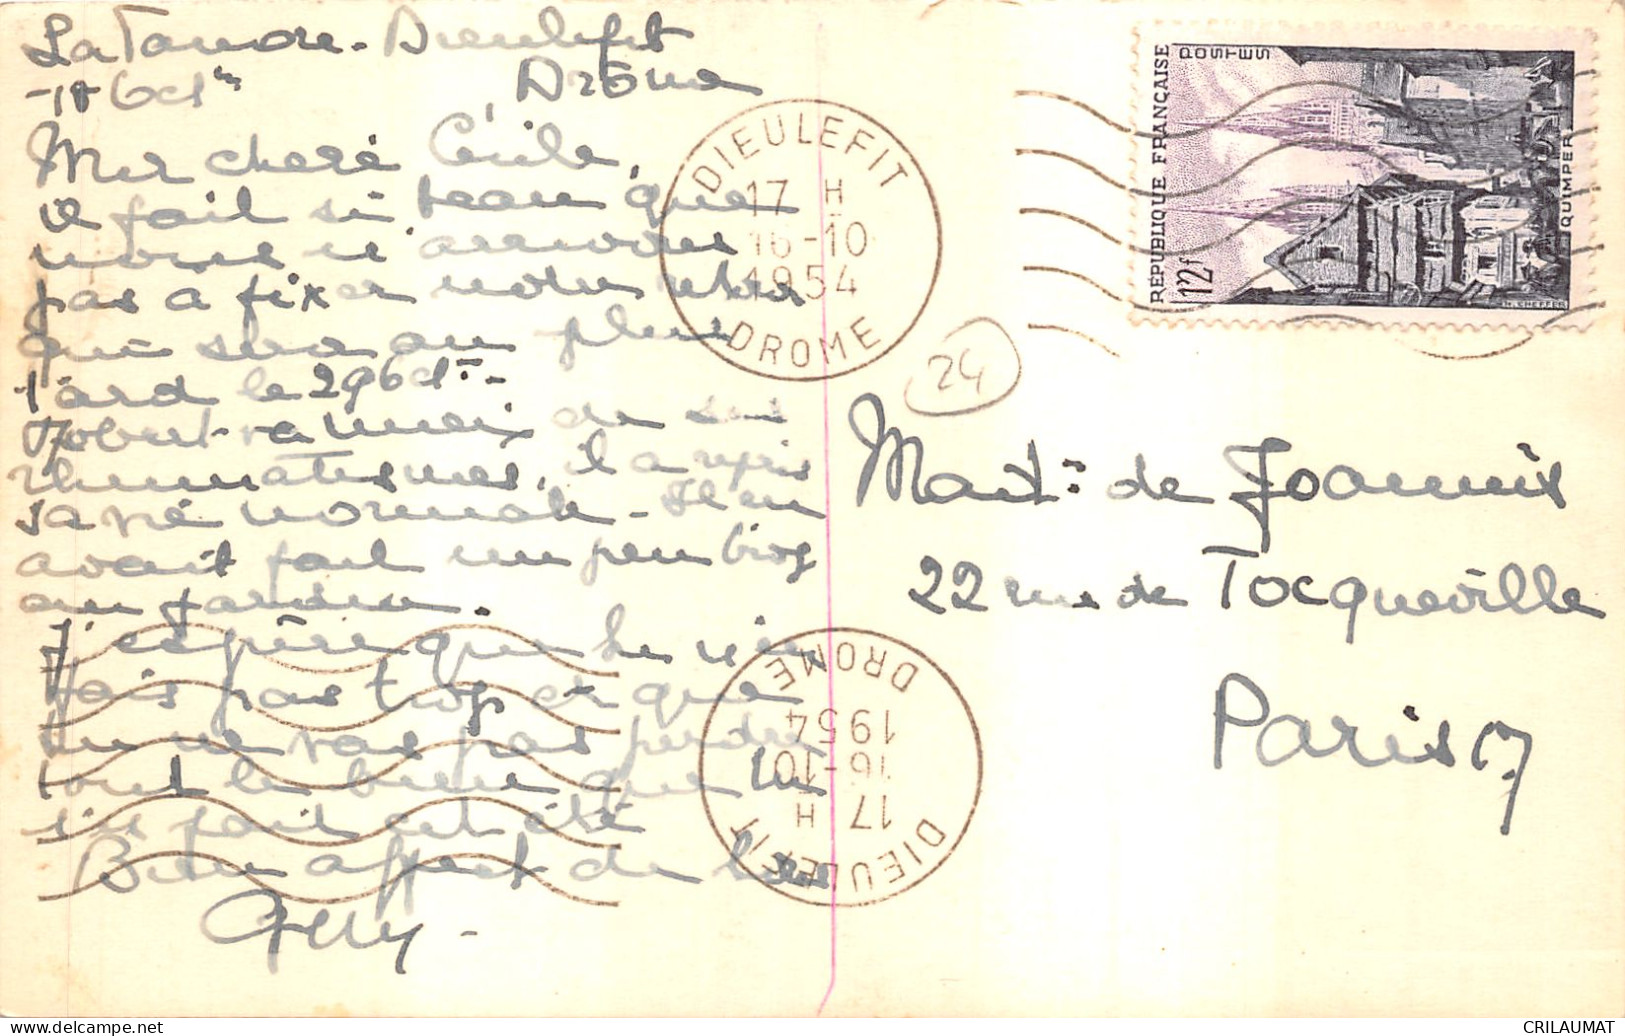 Dieulefit
Drôme
Ma chère Cécile,
il fait si beau que
nous n'arrivons
pas à fixer notre retour
qui sera au plus
tard le 29 Oct
Robert va mieux de ses
rhumatismes, il a repris
sa vie normale - Il en
avait fait un peu trop
au jardin.
J'espère que tu n'en
fais pas trop et que
tu ne vas pas perdre
tout le bien que tu
t'es fait cet été
Bien affect de tous
DIEULEFIT
17 H
16-10
1954
DROME
DIEULEFIT
17 H
16-10
1954
DROME
24
REPUBLIQUE FRANÇAISE
POSTES
12f
QUIMPER
H. CHEFFER
de Joannis
22 rue de Tocqueville
Paris 17
CRILAUMAT